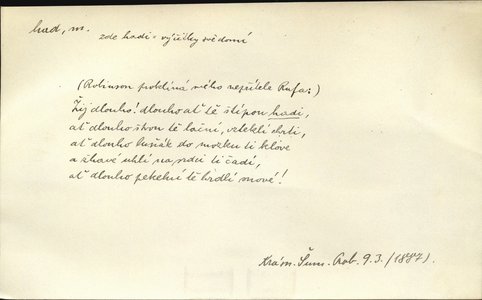 had, m.
zde hadi = výčitky svědomí
(Robinson proklíná svého nepřítele Rufa:)
Žij dlouho! dlouho ať tě štípou hadi,
ať dlouho štvou tě lační, vzteklí chrti,
ať dlouho krkák do mozku ti klove
a žhavé uhlí na srdci ti čadí,
ať dlouho pekelní tě hrdlí snové!
Krásn. Šum. Rob. 9.3. (1887).